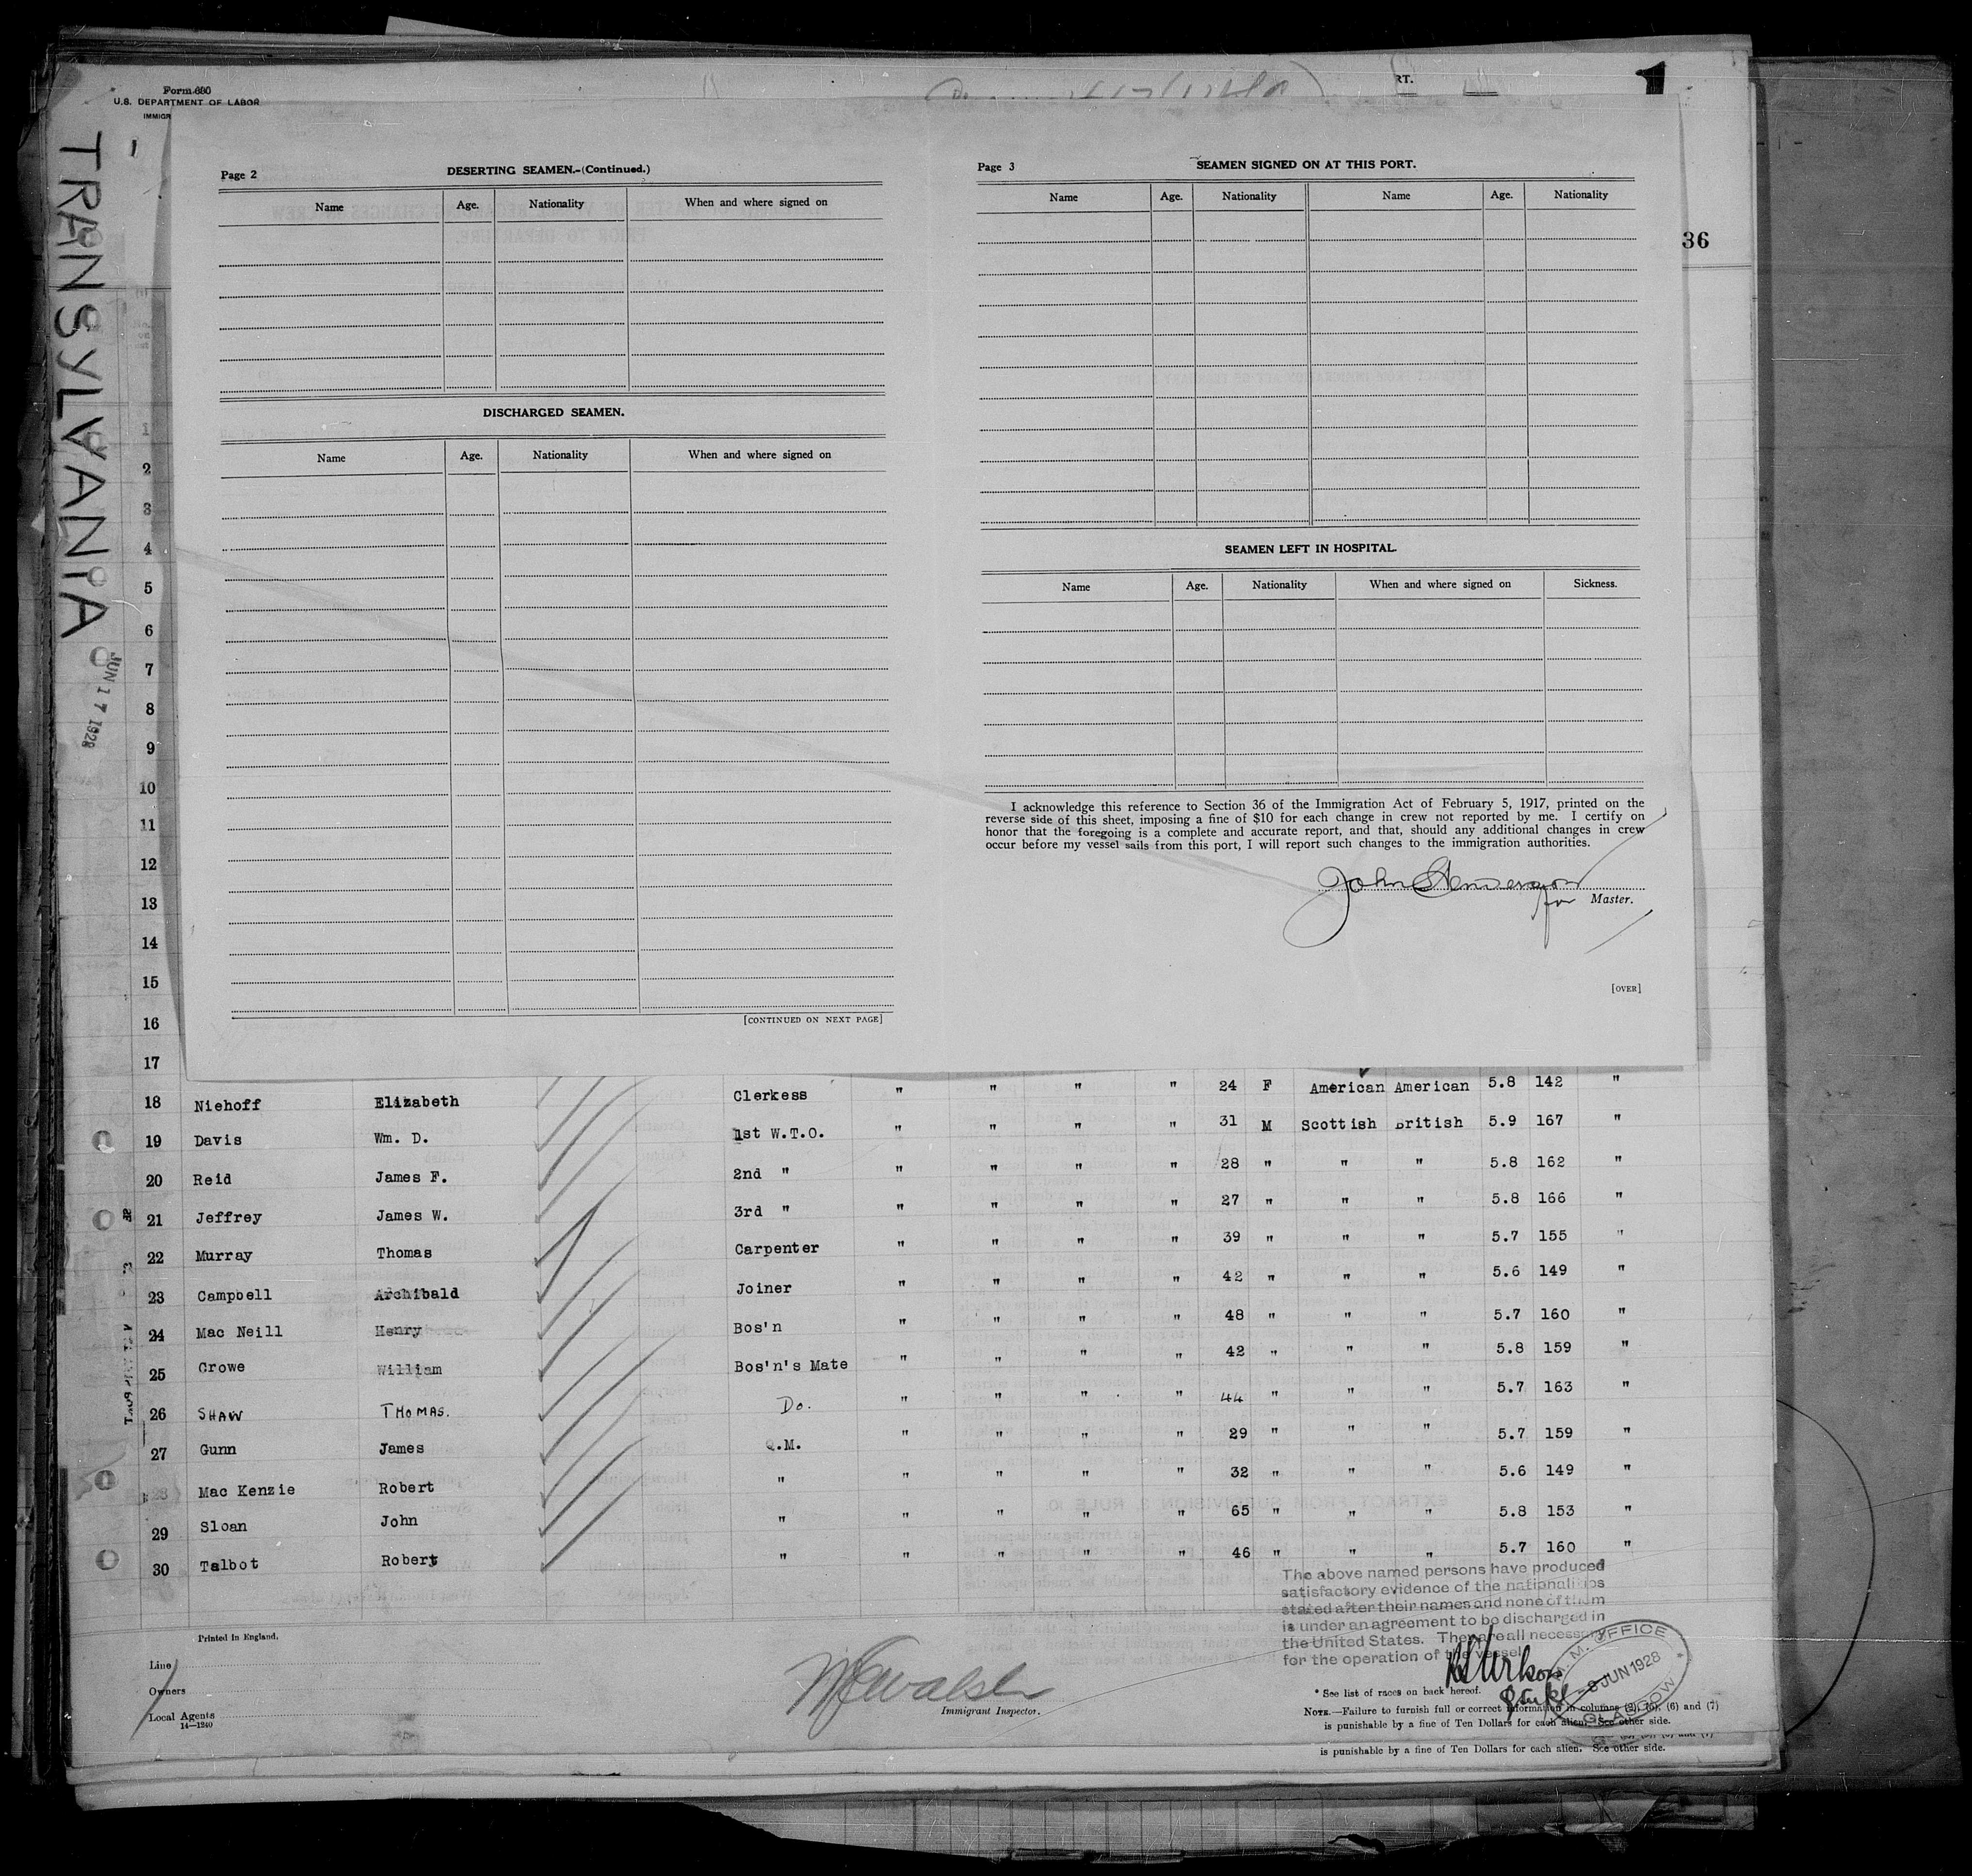 Form 680
U.S. DEPARTMENT OF LABOR
IMMIGR
RT.
1
36
TRANSYLVANIA
JUN 17 1928
Page 2
DESERTING SEAMEN.-(Continued.)
Name Age. Nationality When and where signed on
DISCHARGED SEAMEN.
Name Age. Nationality When and where signed on
[CONTINUED ON NEXT PAGE]
Page 3
SEAMEN SIGNED ON AT THIS PORT.
Name Age. Nationality Name Age. Nationality
SEAMEN LEFT IN HOSPITAL.
Name Age. Nationality When and where signed on Sickness.
I acknowledge this reference to Section 36 of the Immigration Act of February 5, 1917, printed on the
reverse side of this sheet, imposing a fine of $10 for each change in crew not reported by me. I certify on
honor that the foregoing is a complete and accurate report, and that, should any additional changes in crew
occur before my vessel sails from this port, I will report such changes to the immigration authorities.
John Henderson
for Master.
[OVER]
1
2
3
4
5
6
7
8
9
10
11
12
13
14
15
16
17
18 Niehoff Elizabeth Clerkess " " " " 24 F American American 5.8 142 "
19 Davis Wm. D. 1st W.T.O. " " " " 31 M Scottish British 5.9 167 "
20 Reid James F. 2nd " " " " " 28 " " " 5.8 162 "
21 Jeffrey James W. 3rd " " " " " 27 " " " 5.8 166 "
22 Murray Thomas Carpenter " " " " 39 " " " 5.7 155 "
23 Campbell Archibald Joiner " " " " 42 " " " 5.6 149 "
24 Mac Neill Henry Bos'n " " " " 48 " " " 5.7 160 "
25 Crowe William Bos'n's Mate " " " " 42 " " " 5.8 159 "
26 SHAW THOMAS. Do. " " " " 44 " " " 5.7 163 "
27 Gunn James Q.M. " " " " 29 " " " 5.7 159 "
28 Mac Kenzie Robert " " " " " 32 " " " 5.6 149 "
29 Sloan John " " " " " 65 " " " 5.8 153 "
30 Talbot Robert " " " " " 46 " " " 5.7 160 "
The above named persons have produced
satisfactory evidence of the nationalities
stated after their names and none of them
is under an agreement to be discharged in
the United States. They are all necessary
for the operation of the vessel
M. OFFICE
-8 JUN 1928
GLASGOW
Printed in England.
Line
Owners
Local Agents
14-1240
Walsh
Immigrant Inspector.
* See list of races on back hereof.
NOTE.—Failure to furnish full or correct information in columns (6) and (7)
is punishable by a fine of Ten Dollars for each alien. See other side.
is punishable by a fine of Ten Dollars for each alien. See other side.